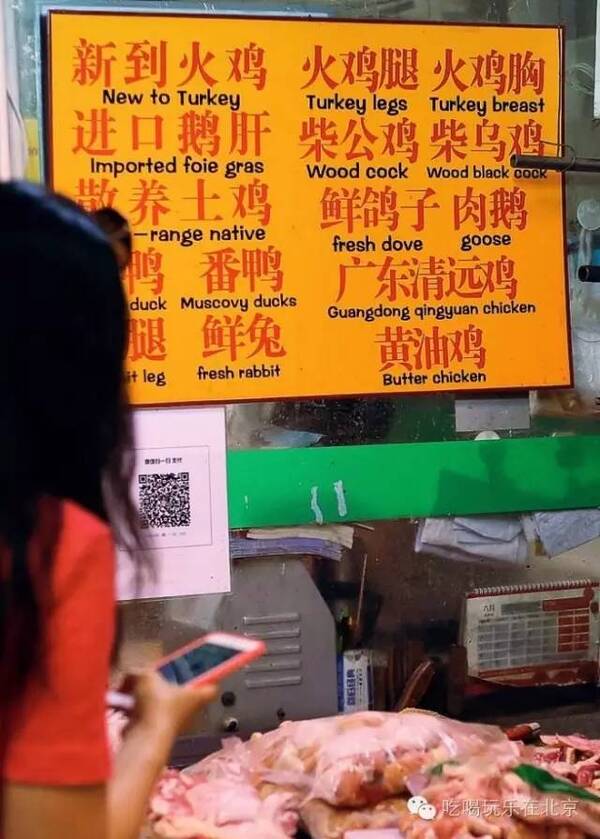 新到火鸡 火鸡腿 火鸡胸
New to Turkey Turkey legs Turkey breast
进口鹅肝 柴公鸡 柴乌鸡
Imported foie gras Wood cock Wood black cock
散养土鸡 鲜鸽子 肉鹅
-range native fresh dove goose
鸭 番鸭 广东清远鸡
duck Muscovy ducks Guangdong qingyuan chicken
腿 鲜兔 黄油鸡
it leg fresh rabbit Butter chicken
微信扫一扫 支付
八月
吃喝玩乐在北京